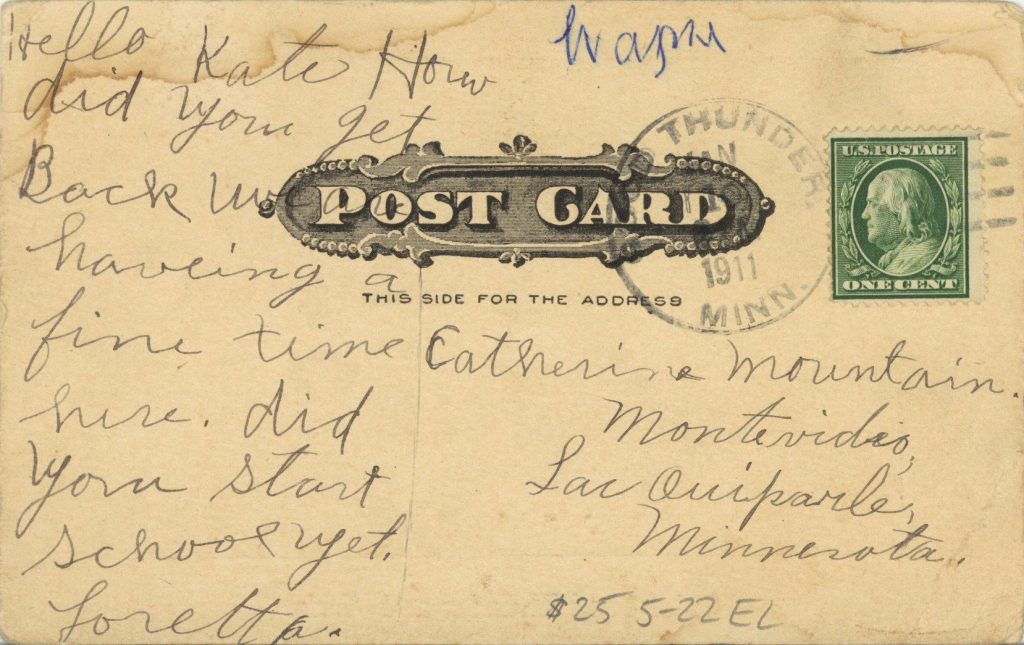 Hello
Kate How
did you get
Back we are
haveing a
fine time
here. did
you start
school yet.
Loretta.
THUNDER
JAN
1911
MINN.
U.S. POSTAGE
ONE CENT
POST CARD
THIS SIDE FOR THE ADDRESS
Catherine Mountain.
Montevidio,
Lac Quiparle,
Minnesota.
$25 5-22 EL